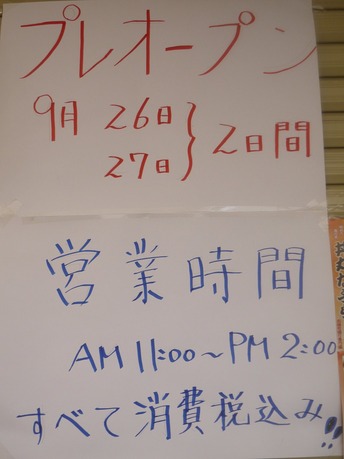 プレオープン
9月 26日
27日 } 2日間
営業時間
AM 11:00〜PM 2:00
すべて消費税込み!!